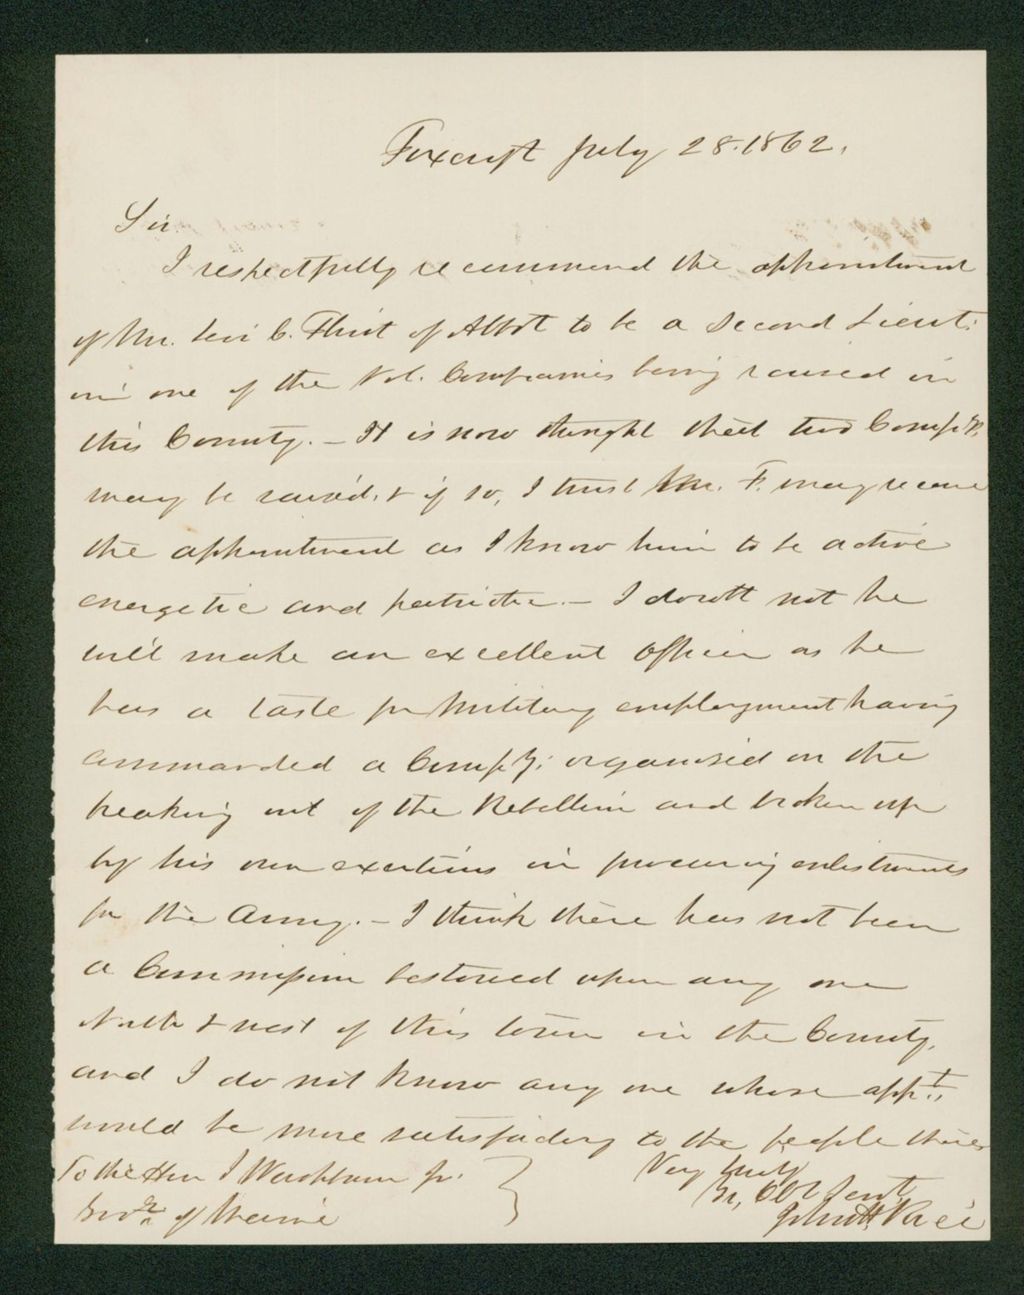 Foxcroft July 28. 1862.
Sir
I respectfully recommend the appointment
of Mr. Levi C. Flint of Abbot to be a Second Lieut.
in one of the Vol. Companies being raised in
this County. - It is now thought that two Comp's,
may be raised, & if so, I trust Mr. F. may receive
the appointment as I know him to be active
energetic and patriotic. - I doubt not he
will make an excellent officer as he
has a taste for Military employment having
commanded a Comp'y; organised on the
breaking out of the Rebellion and broken up
by his own exertions in procuring enlistments
for the Army. - I think there has not been
a Commission bestowed upon any one
North & west of this town in the County,
and I do not know any one whose appt.
would be more satisfactory to the people there
Very truly
To the Hon I Washburn Jr.
Yr, Obt Servt
Govr. of Maine
John H Rice